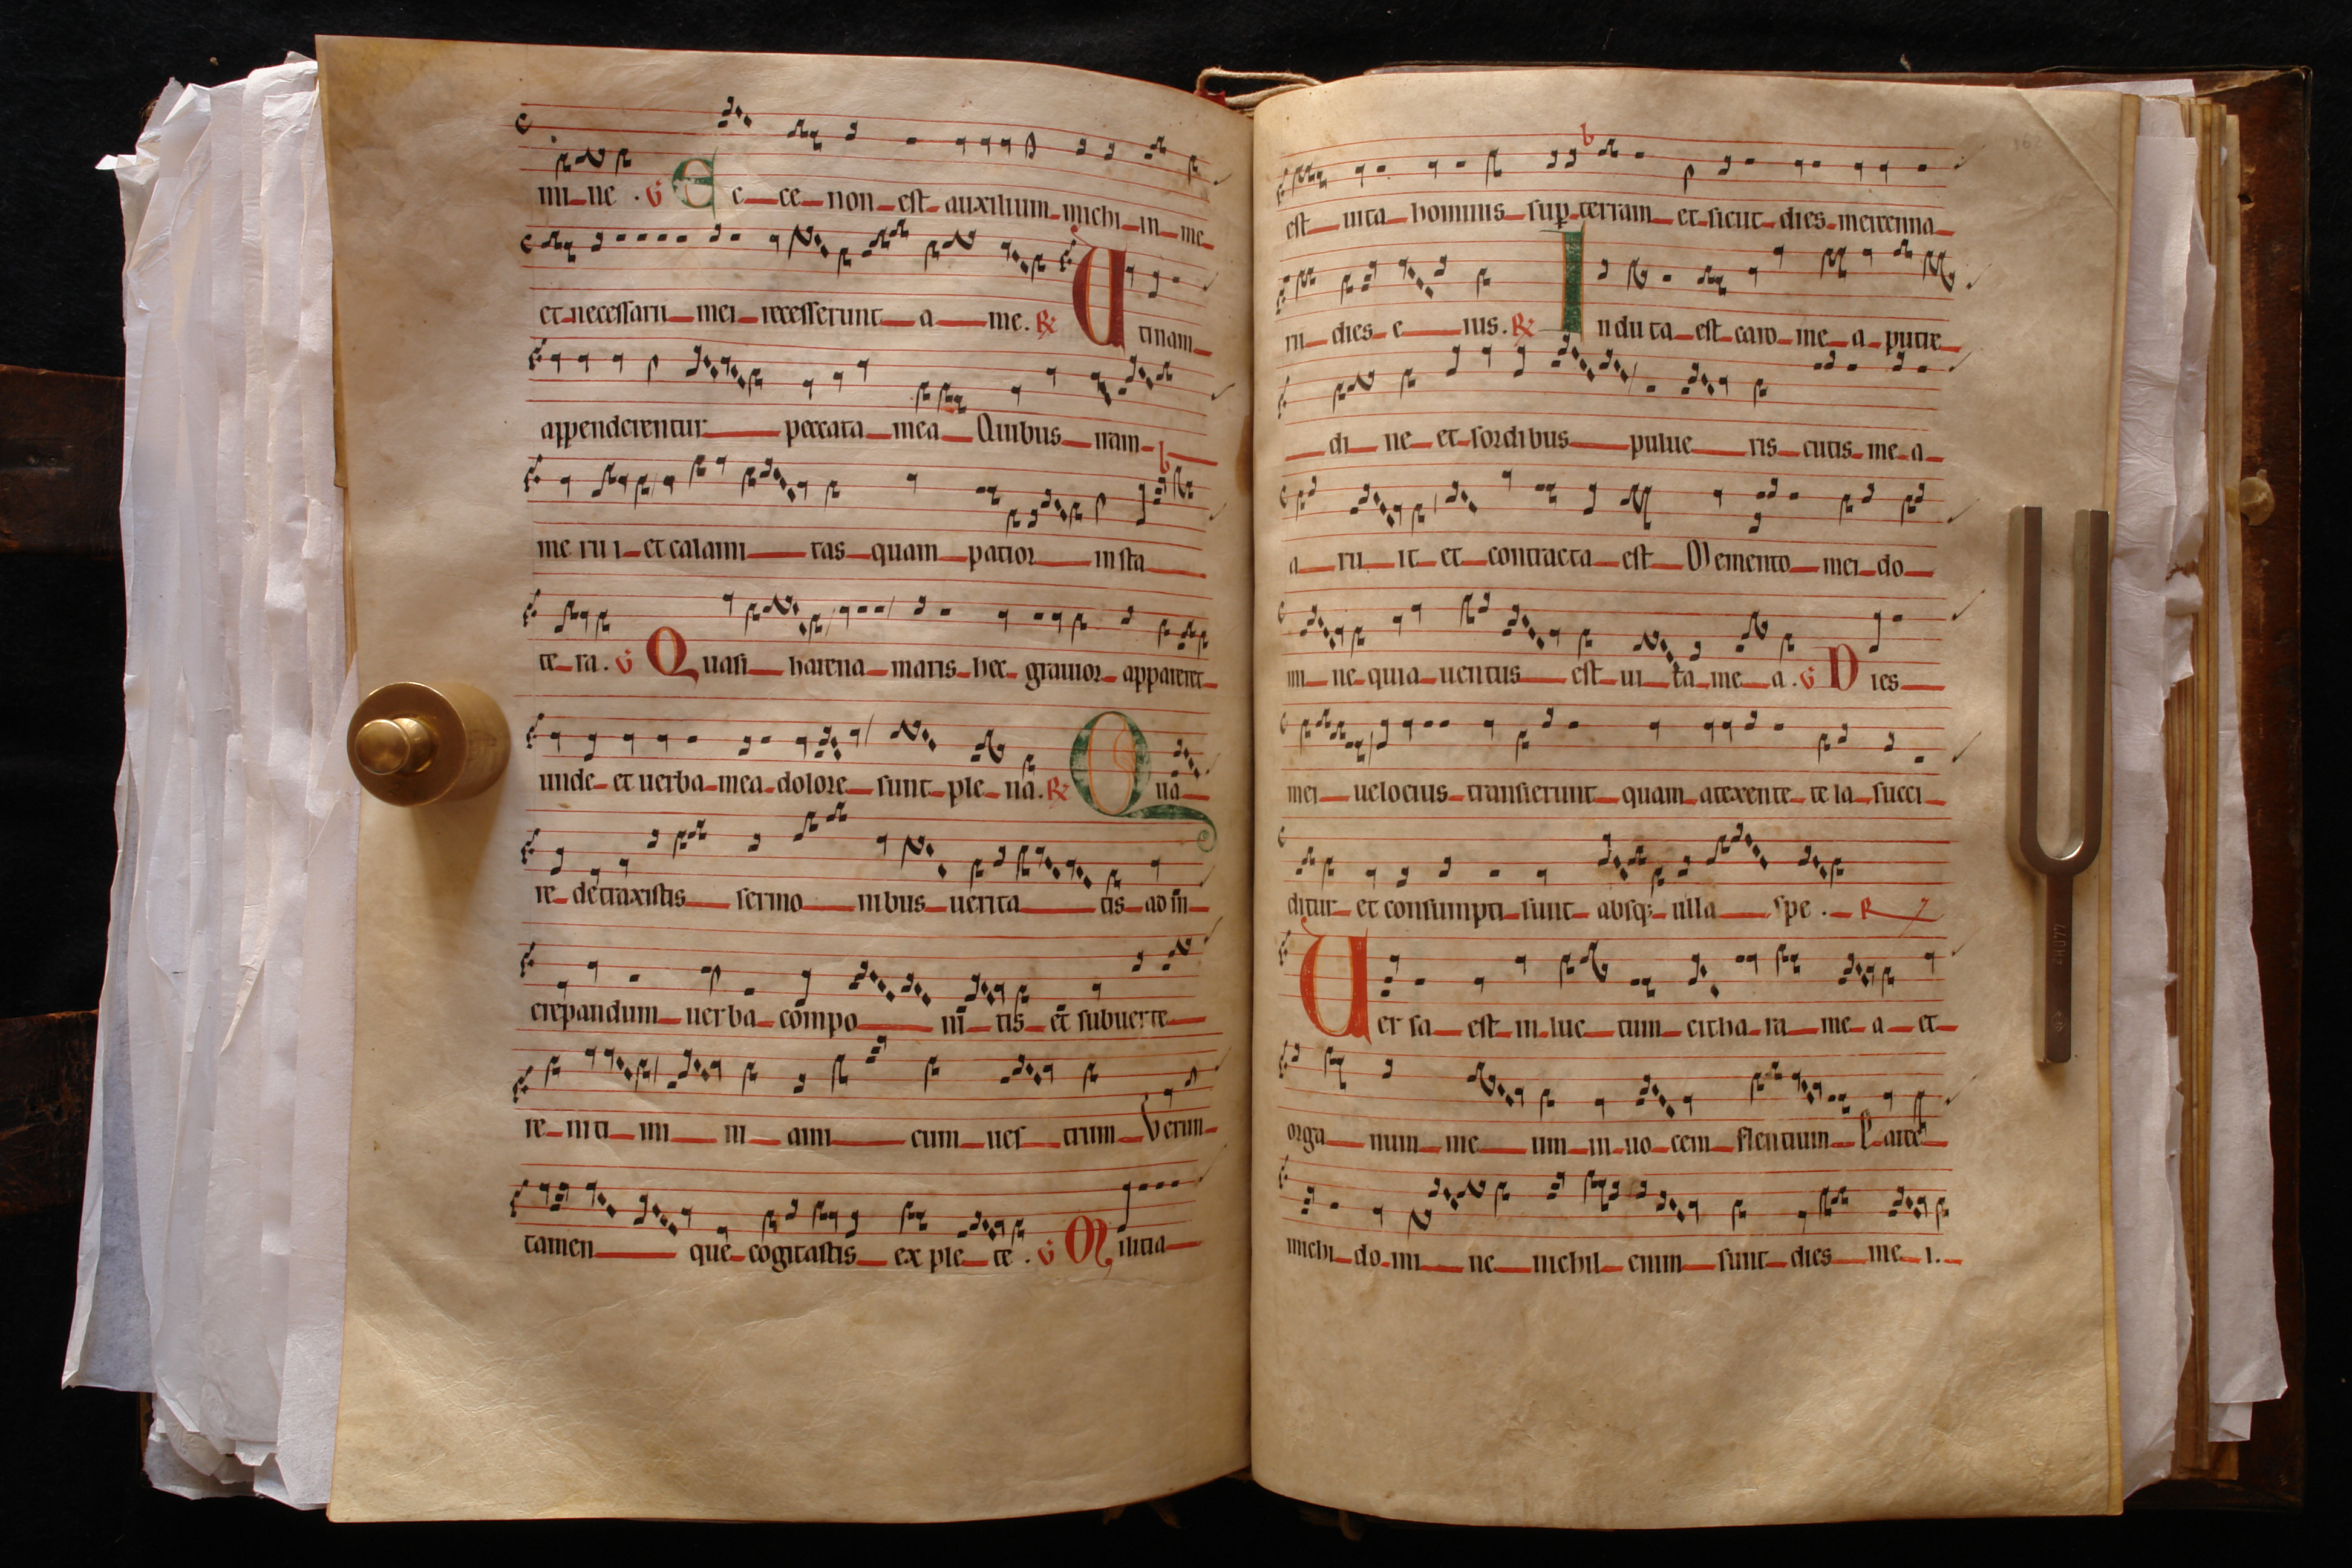 mi ne . V Ec ce non est auxilium michi in me
et necessarii mei recesserunt a me. R Utinam
appenderentur peccata mea Quibus iram
me ru i et calami tas quam patior in sta
te ra. V Quasi harena maris hec grauior appareret
unde et uerba mea dolore sunt ple na. R Qua
re detraxistis sermo nibus uerita tis ad in
crepandum uer ba compo ni tis et subuerte
re niti mi ni ami cum ues trum Verun
tamen que cogitastis ex ple te . V Militia
est uita hominis sup terram et sicut dies mercenna
rii dies e ius. R Indu ta est caro me a putre
di ne et sordibus pulue ris cutis me a
a ru it et contracta est Memento mei do
mi ne quia uentus est ui ta me a. V Dies
mei uelocius transierunt quam atexente te la succi
ditur et consumpti sunt absq; ulla spe . R
Uer sa est in luc tum citha ra me a et
orga num me um in uo cem flentium Parce
michi do mi ne nichil enim sunt dies me i.